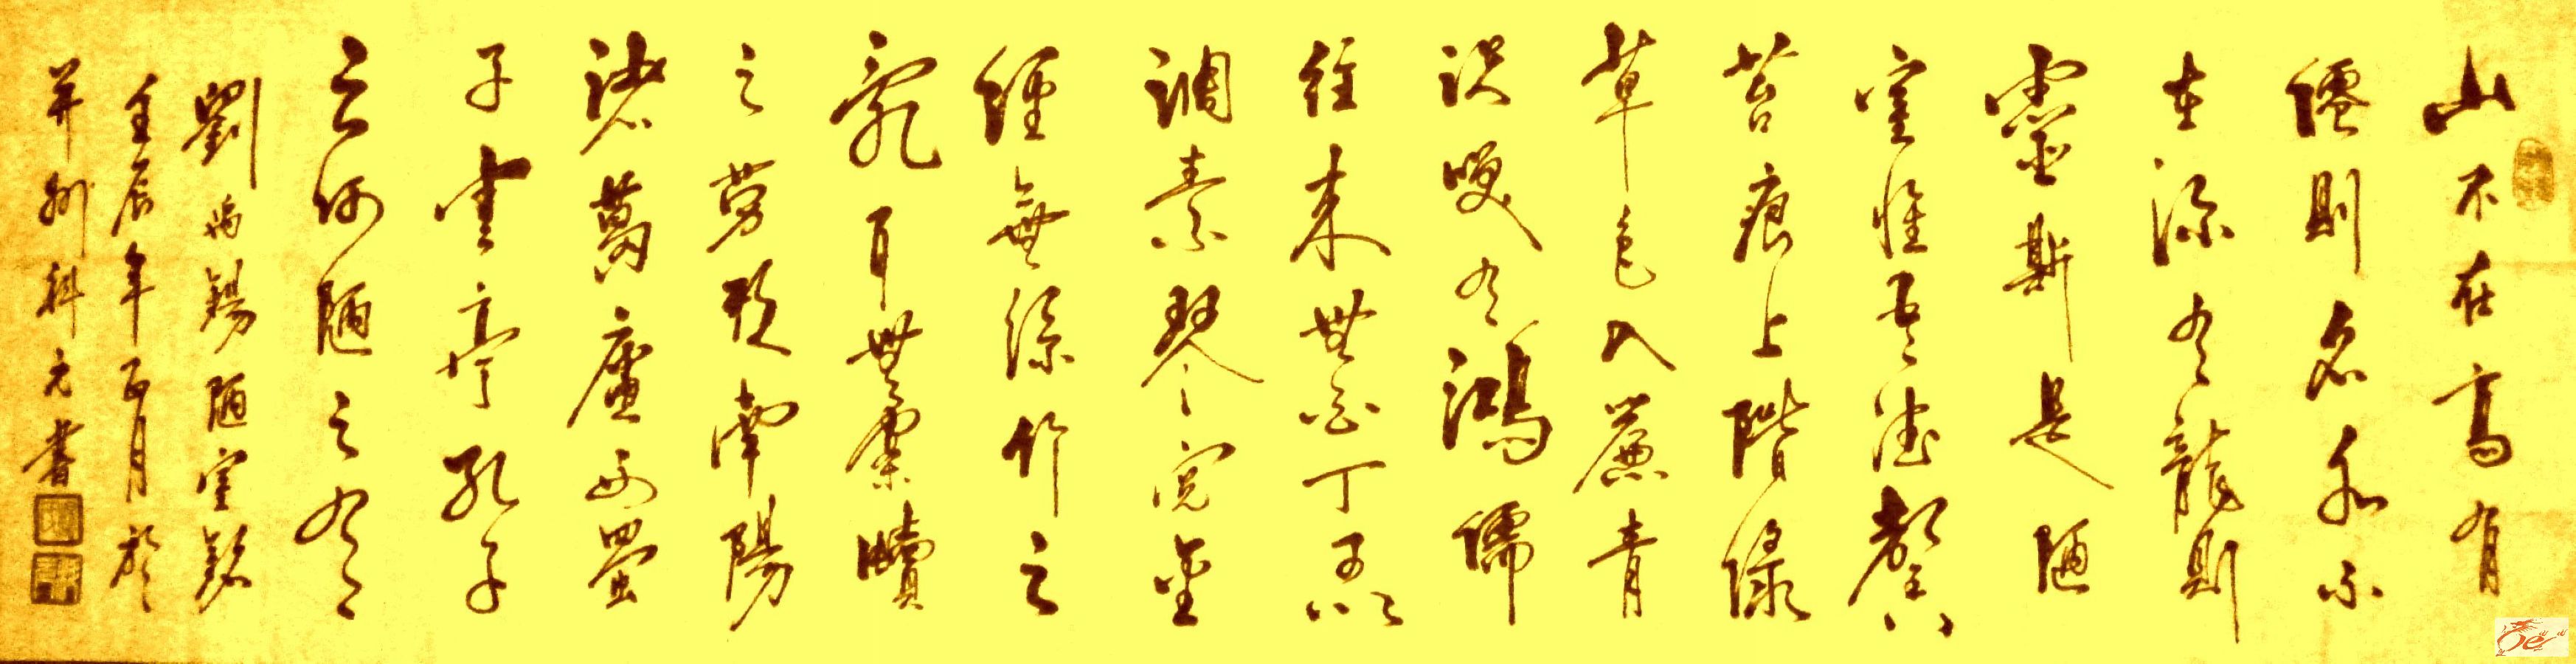 山不在高有
僊則名水不
在深有龍則
靈斯是陋
室惟吾德馨
苔痕上階綠
草色入簾青
談笑有鴻儒
往來無白丁可以
調素琴閱金
經無絲竹之
亂耳無案牘
之勞形南陽
諸葛廬西蜀
子雲亭孔子
云何陋之有
劉禹錫陋室銘
壬辰年正月於
并州科元書